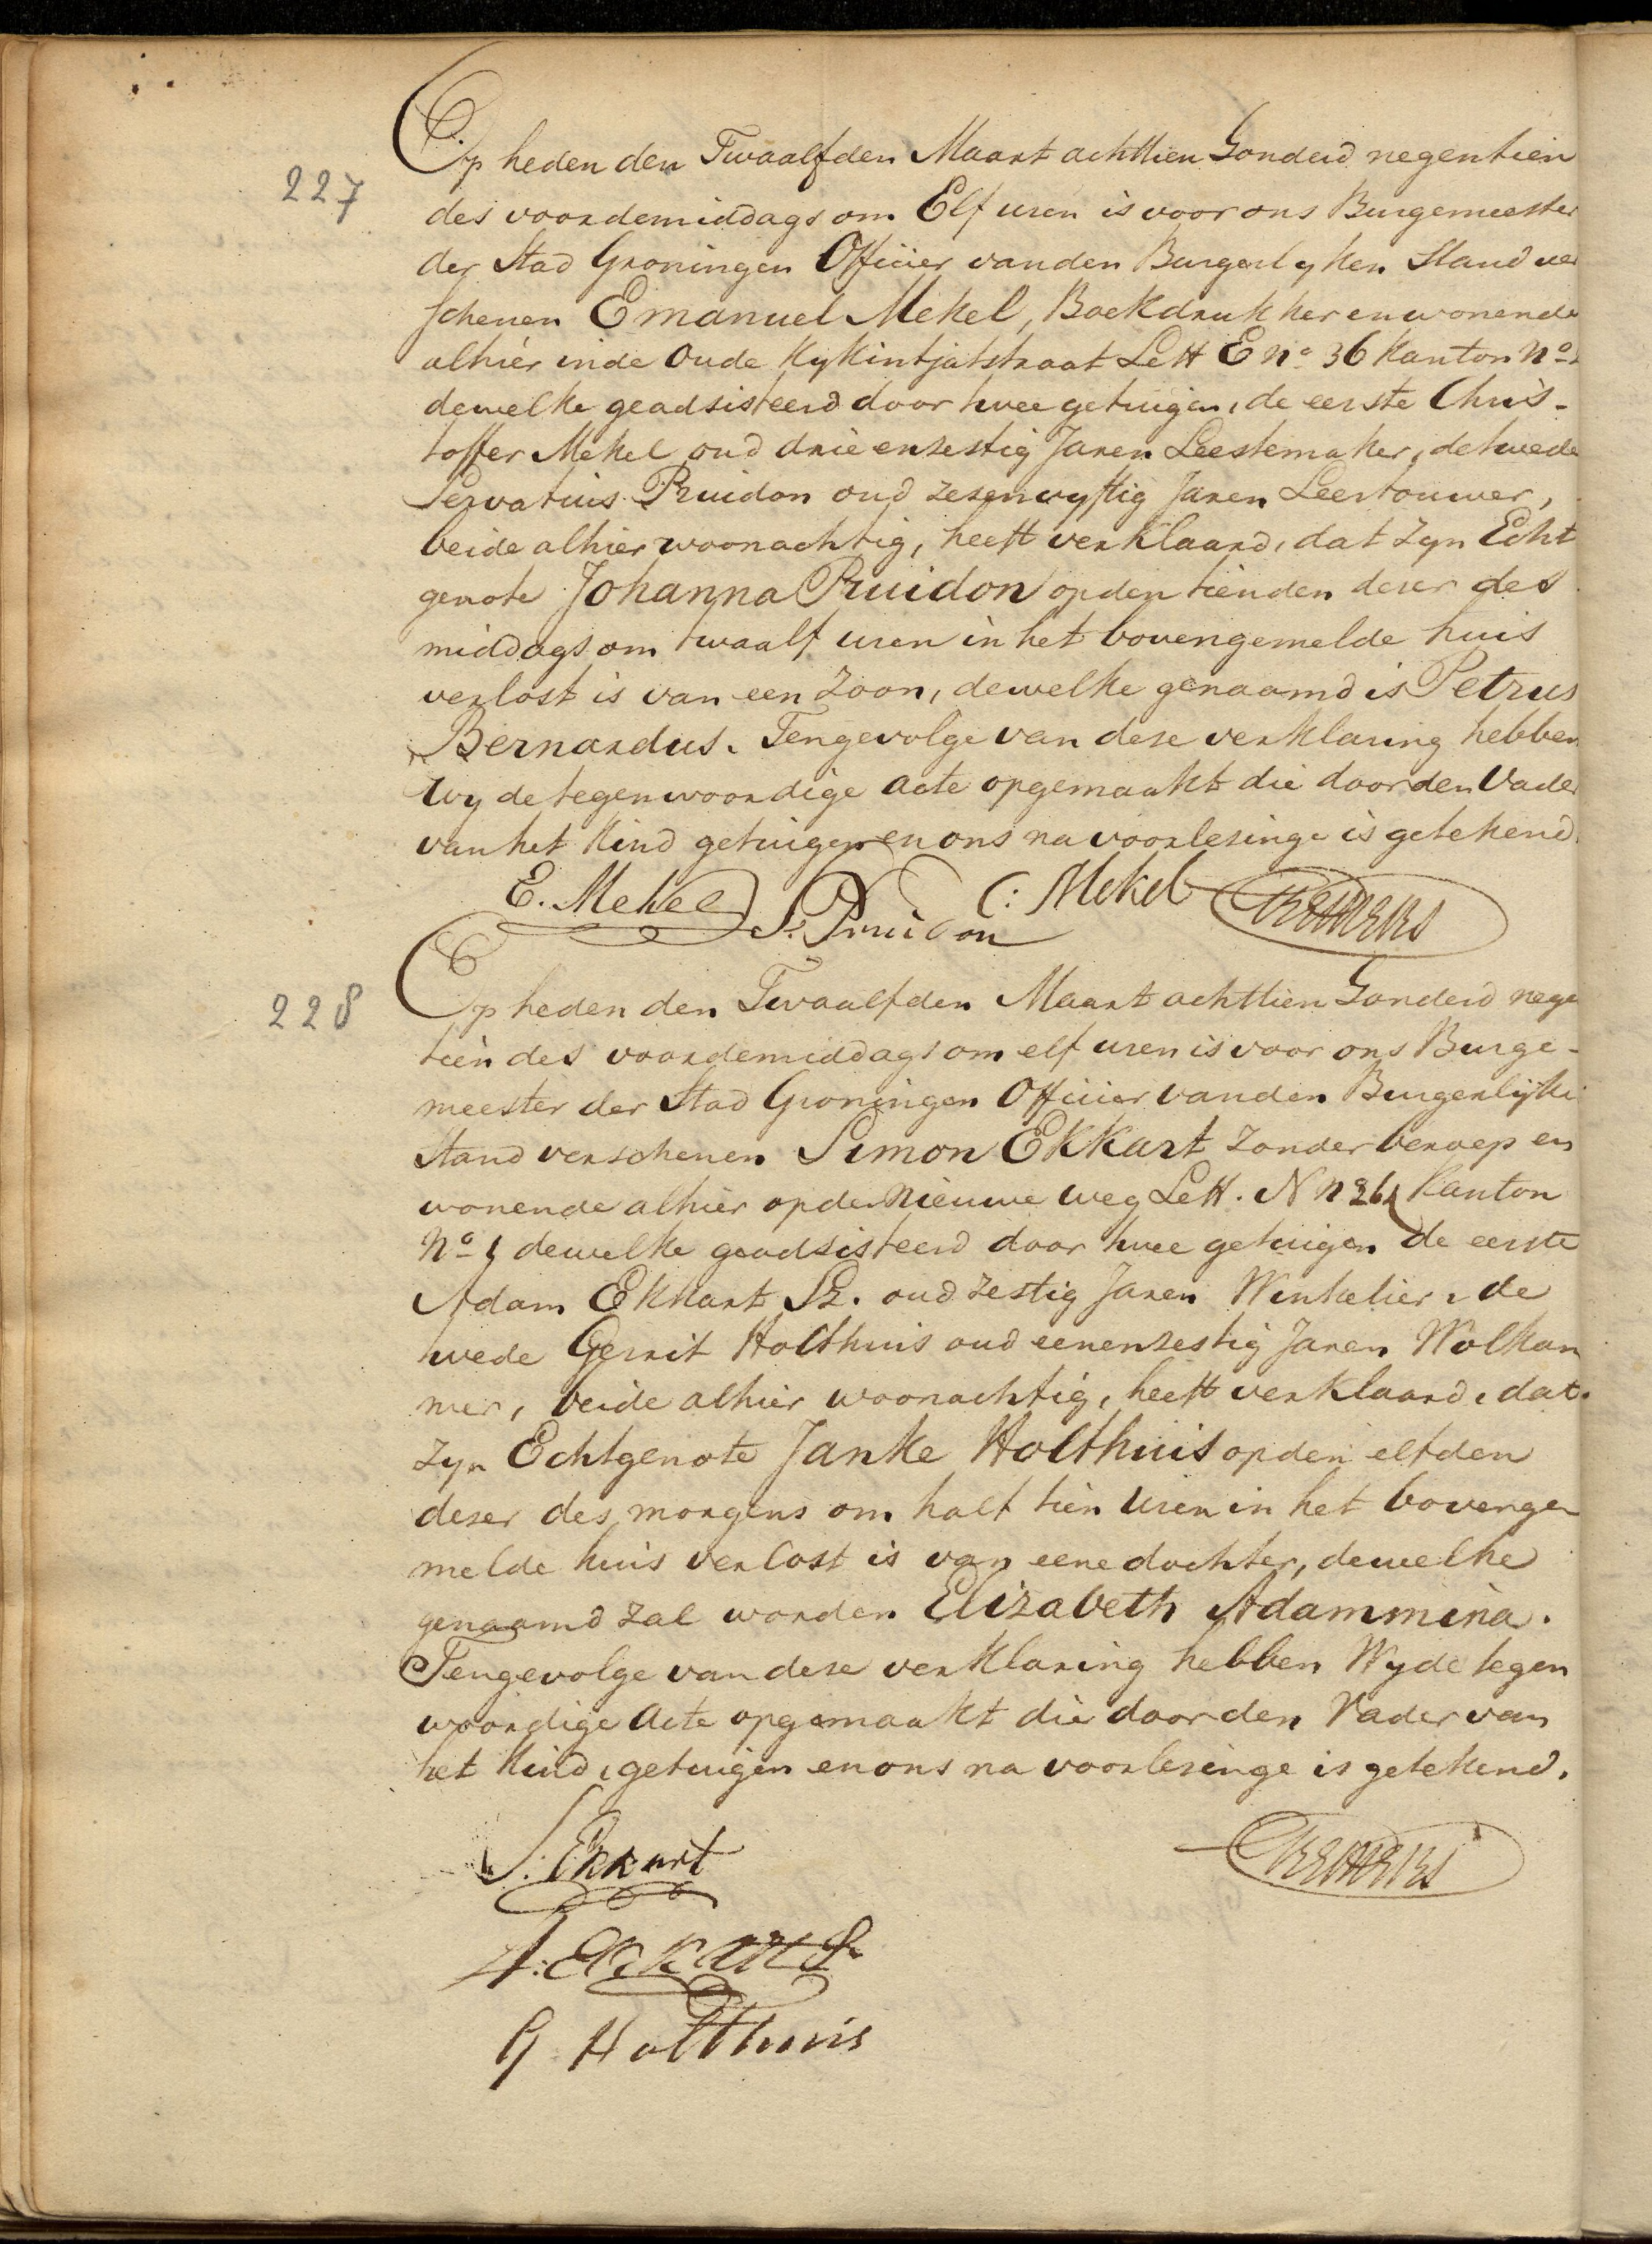 227
Op heden den Twaalfden Maart achttien Honderd negentien
des voordemiddags om Elf uren is voor ons Burgemeester
der Stad Groningen Officier van den Burgerlyken Stand ver
schenen Emanuel Mekel, Boekdrukker en wonende
alhier in de Oude Kykintjatstraat Lett E No 36 Kanton No
dewelke geadsisteerd door twee getuigen, de eerste Chris-
toffer Mekel oud drie enzestig Jaren Leestemaker, de twede
Servatius Pruidon oud zesenvyftig Jaren Leertouwer,
beide alhier woonachtig, heeft verklaard, dat zyn Echt
genote Johanna Pruidon op den tienden dezer des
middags om twaalf uren in het bovengemelde huis
verlost is van een Zoon, dewelke genaamd is Petrus
Bernardus. Tengevolge van deze verklaring hebben
Wy de tegenwoordige acte opgemaakt die door den Vader
van het Kind getuigen en ons na voorlezinge is getekend
E. Mekel S. Pruidon C: Mekel
228
Op heden den Twaalfden Maart achttien Honderd nege
tien des voordemiddags om elf uren is voor ons Burge-
meester der Stad Groningen Officier van den Burgerlijke
Stand verschenen Simon Ekkart Zonder beroep en
wonende alhier op de Nieuwe weg Lett. N Kanton
No dewelke geadsisteerd door twee getuigen de eerste
Adam Ekkart Sr. oud zestig Jaren Winkelier, de
twede Gerrit Holthuis oud eenenzestig Jaren Wolkam
mer, beide alhier woonachtig, heeft verklaard, dat
zyn Echtgenote Janke Holthuis op den elfden
dezer des morgens om half tien Uren in het bovenge
melde huis verlost is van eene dochter, dewelke
genaamd zal worden Elizabeth Adammina.
Tengevolge van deze verklaring hebben Wy de tegen
woordige Acte opgemaakt die door den Vader van
het Kind, getuigen en ons na voorlezinge is getekend.
S. Ekkart
A: Ekkart Sr
G Holthuis